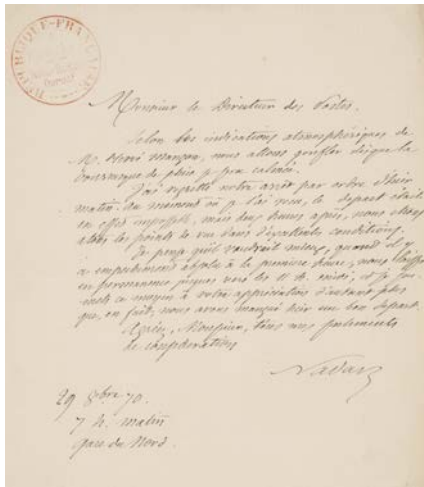 REPUBLIQUE-FRANÇAISE
Monsieur le Directeur des Postes,
Selon les indications atmosphériques de
M. Hervé Mangon, nous allons gonfler dès que la
bourrasque de pluie sera calmée.
J'ai regretté notre arrêt par ordre d'hier
matin. Au moment où je l'ai reçu, le départ était
en effet impossible, mais deux heures après, nous étions
dans les d'excellentes conditions.
Je pense qu'il vaudrait mieux, quand il y
a empêchement absolu à la première heure, nous laisser
en permanence jusques vers les 11 h. midi, et je
ce moyen à votre appréciation d'autant plus
que, en fait, nous avons manqué hier un bon départ.
Agréez, Monsieur, tous mes
de considération
Nadar
29 8bre 70.
7 h. matin
gare du Nord.